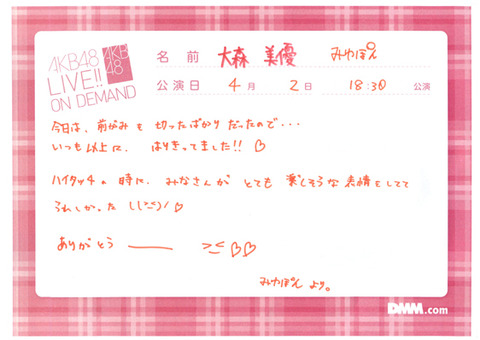 AKB48
LIVE!!
ON DEMAND
AKB
48
名前 大森 美優 みゆぽん
公演日 4月 2日 18:30 公演
今日は、前がみも 切ったばかり だったので・・・
いつも以上に、はりきってました!! ♡
ハイタッチの 時に、みなさんが とても 楽しそうな 表情をしてて
うれしかった \(>≤)/ ♡
ありがとう —— >≤ ♡♡
みゆぽん より。
DMM.com